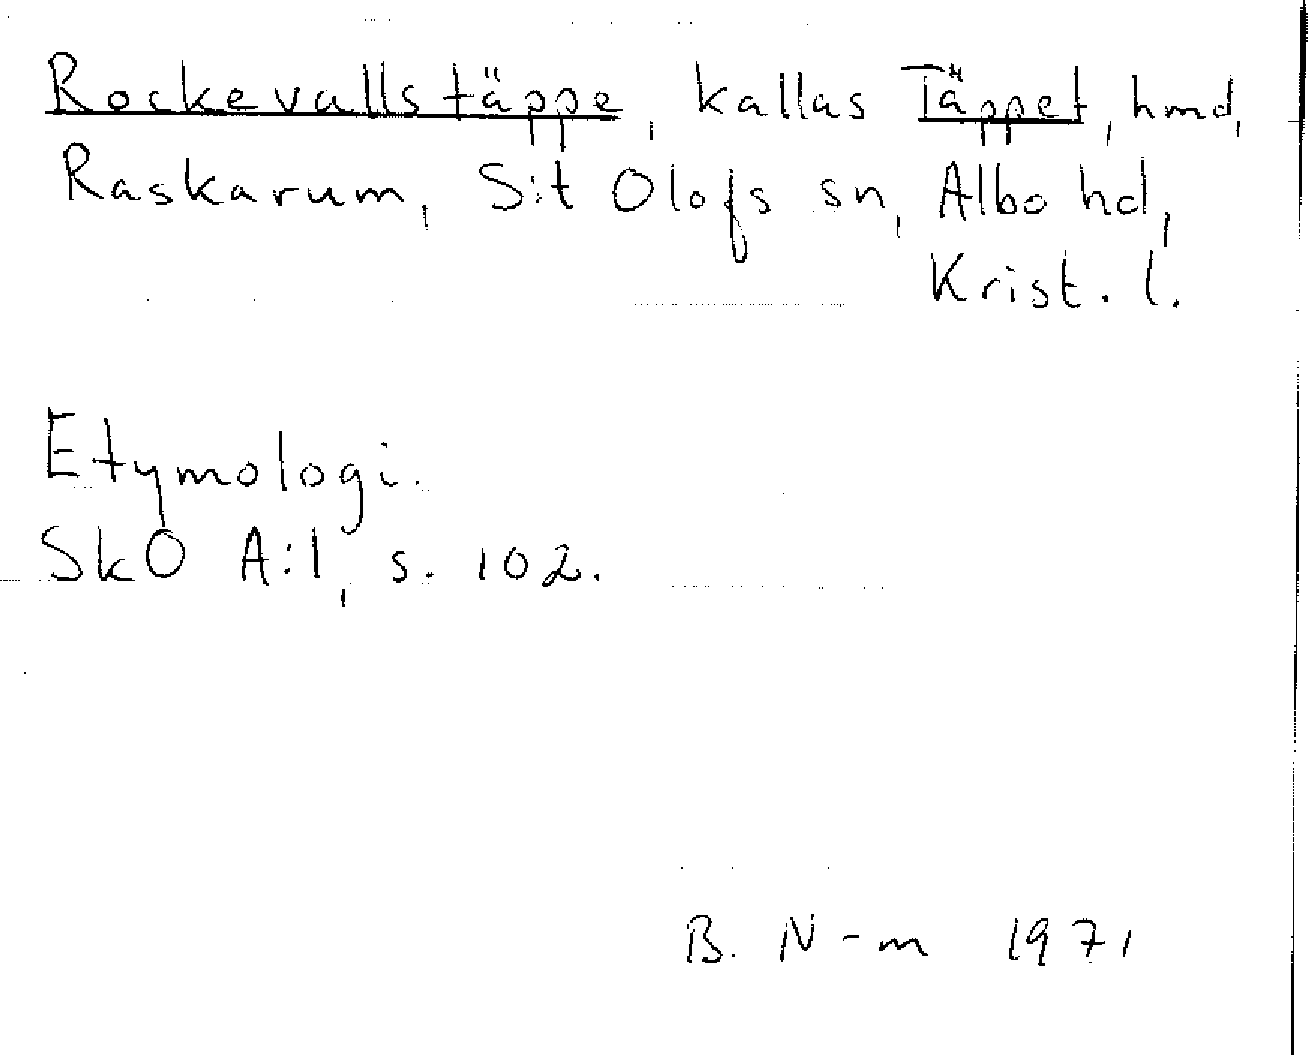 Rockevallstäppe, kallas Täppet, hmd,
Raskarum, S:t Olofs sn, Albo hd,
Krist. l.
Etymologi.
SkO A:1, s. 102.
B. N-m 1971